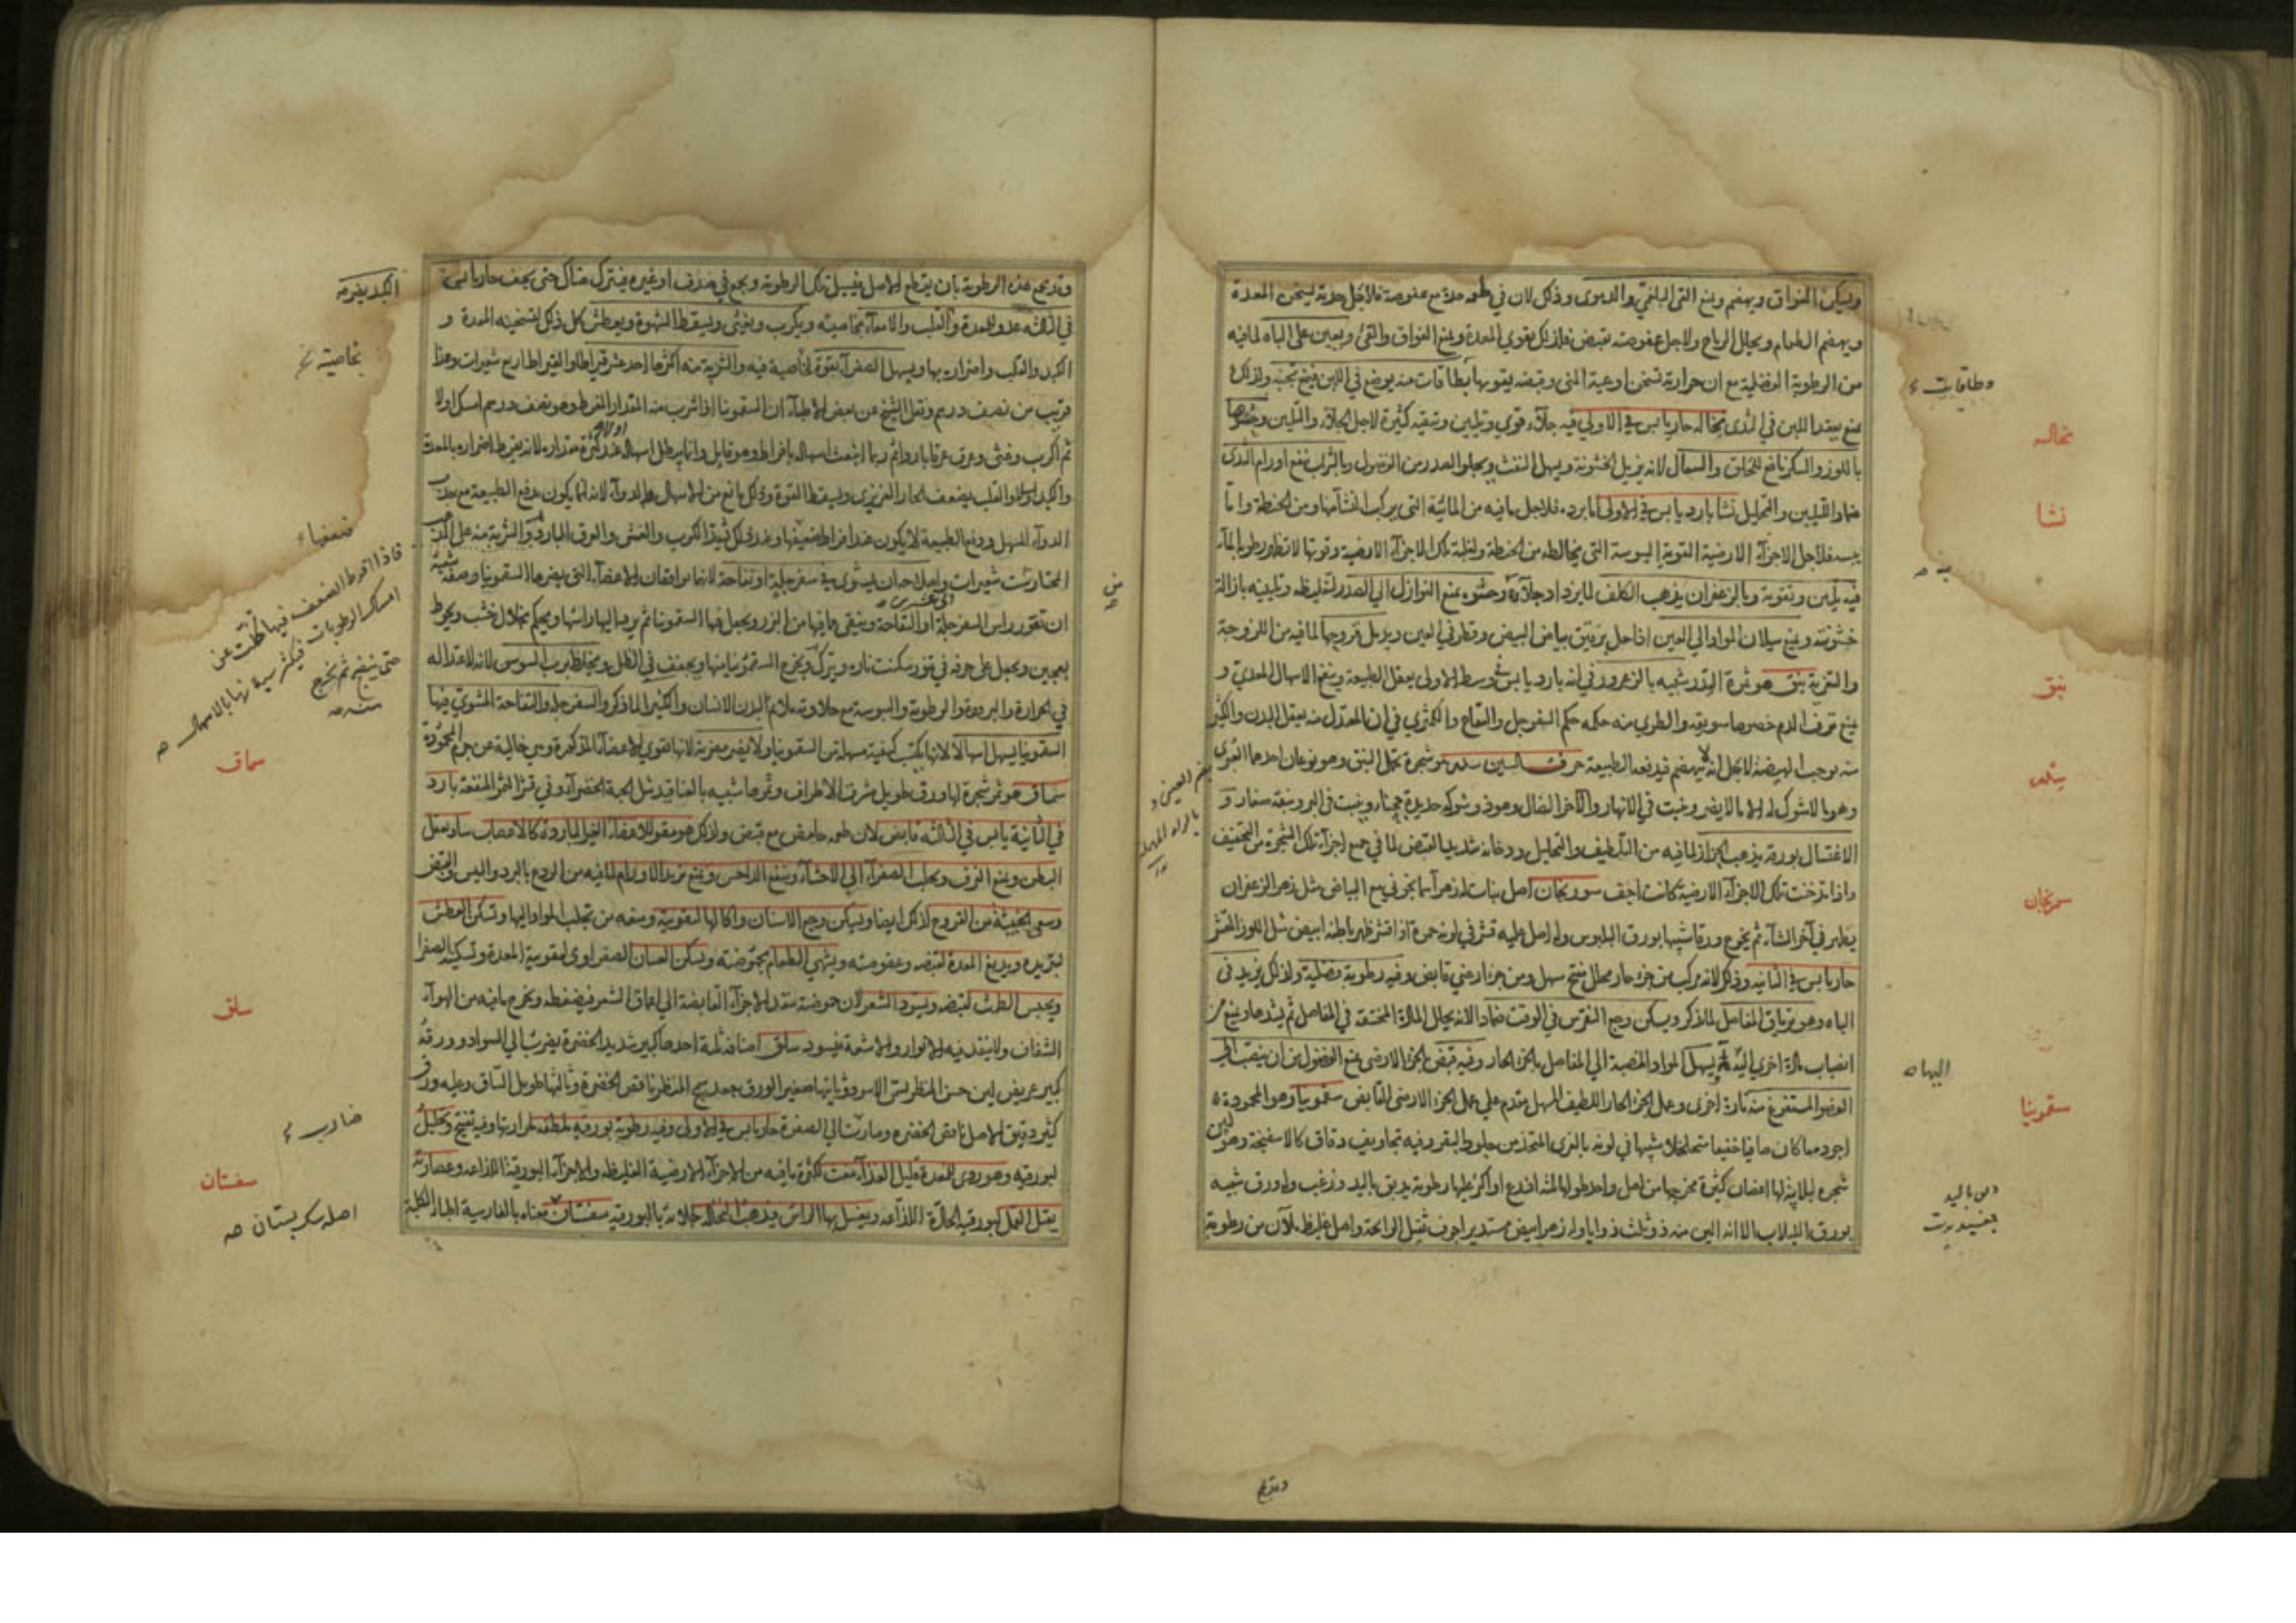 ويسكن الفواق ويهضم ويمنع القئ البلغمي والدموى وذلك لان في طعمه حدة مع عفوصة فلاجل حدته يسخن المعدة
ويهضم الطعام ويحلل الرياح ولاجل عفوصته تقبض فلذلك يقوي المعدة ويمنع الفواق والقئ ويعين على الباه لما فيه
من الرطوبة الفضلية مع ان حرارته تسخن اوعية المنى وقبضه يقويها بطاقات منه يوضع في اللبن فيمنع تجبنه ولذلك
يمنع بعقد اللبن في الثدى نخاله حار يابس في الاولي فيه جلاء قوي وتليين وتنقيه كثيرة لاجل الجلاء والتليين وخصوصا
باللوز والسكر نافع للحلق والسعال لانه يزيل الخشونة ويسهل النفث ويجلو الصدر من الفضول وبالشراب ينفع اورام الثدى
ضمادا لتليين والتحليل نشا بارد يابس في الاولى اما برده فلاجل ما فيه من المائية التى يركب النشا منها ومن الحنطة واما
يبسه فلاجل الاجزاء الارضية القوية اليبوسة التى يخالطه من الحنطة ولغلبة تلك الاجزاء الارضية وقوتها لا تظهر رطوبة الماء
فيه تليين وتقوية وبالزعفران يذهب الكلف لما يزداد جلاؤه وحشوه يمنع النوازل الي الصدر لتغليظه وتليينه بازالة
خشونته ويمنع سيلان المواد الي العين اذا حل برقيق بياض البيض وقطر في العين ويدمل قروحها لما فيه من اللزوجة
والتغرية نبق هو ثمرة السدر شبيه بالزعرور في انه بارد يابس في وسط الاولى يعقل الطبيعة وينفع الاسهال المعدي و
يمنع نزف الدم خصوصا سويقه والطري منه حكمه حكم السفرجل والتفاح والكمثري في ان المعتدل منه يعقل البدن والكثير
منه يوجب الهيضة لاجل انه لا ينهضم فيدفعه الطبيعة حرف السين سدر هو شجرة تحمل النبق وهو نوعان احدهما البرى
وهو بالاشوك له الا ما لا يضر وينبت في الانهار والآخر الضال وهو ذو شوكة حديدة حجناء وينبت في البر ونبقه صغار و
الاغتسال بورقه يذهب الحزاز لما فيه من التلطيف والتحليل ودخانه شديد القبض لما في جميع اجزاء تلك الشجرة من التجفيف
واذا تدخنت تلك الاجزاء الارضية كانت اجف سورنجان اصل نبات له زهر انما يخرج مع البياض مثل زهر الزعفران
يظهر في آخر الشتاء ثم يخرج ورقا شبيها بورق البلبوس وله اصل عليه قشر في لونه حمرة اذا قشر ظهر باطنه ابيض مثل اللوز المقشر
حار يابس في الثانيه وذلك لانه مركب من جزء حار محلل مفتح مسهل ومن جزء ارضي قابض وفيه رطوبة فضلية ولذلك يزيد في
الباه وهو ترياق المفاصل لما ذكر ويسكن وجع النقرس في الوقت ضمادا لانه يحلل المادة المحتقنة في المفاصل ثم يشدها ويمنع من
انصباب مادة اخري اليه ثم يسهل المواد المنصبة الي المفاصل بالجزء الحار وفيه قبض بالجزء الارضى يمنع الفضول من ان ينصب الي
العضو المستفرغ منه تارة اخرى وعمل الجزء الحار اللطيف المسهل متقدم علي عمل الجزء الارضى القابض سقمونيا وهو المحمودة
اجوده ما كان صافيا خفيفا متخلخلا شبيها في لونه بالغرى المتخذ من جلود البقر وفيه تجاويف دقاق كالاسفنجة وهو لبن
شجرة لبلابية لها اغصان كثيرة مخرجها من اصل واحد طولها ثلثة اذرع او اكثر عليها رطوبة يدبق باليد وزغب ولها ورق شبيه
بورق اللبلاب الا انه الين منه ذو ثلث زوايا وله زهر ابيض مستدير اجوف ثقيل الرائحة واصل غليظ ملآن من رطوبة
وطاقات
نخاله
نشا
نبق
سدر
سورنجان
اليها ه
سقمونيا
وقد يجمع
وقد يجمع هذه الرطوبة بان يقطع الاصل فيسيل تلك الرطوبة ويجمع في صدف او غيره فيترك هناك حتى يجف حار يابس
في الثالثه عدو للمعدة والقلب والامعاء بخاصيته ويكرب ويغثى ويسقط الشهوة ويعطش كل ذلك لتسخينه المعدة و
الكبد والقلب واضراره بها ويسهل الصفراء بقوة لخاصية فيه والشربة منه اكثرها احد عشر قيراطا والقيراط اربع شعيرات وهذا
قريب من نصف درهم ونقل الشيخ عن بعض الاطباء ان السقمونيا اذا شرب منه المقدار المفرط وهو نصف درهم امسك اولا
ثم اكرب وغثى وعرق عرقا باردا ثم ربما انبعث اسهاله بافراط وهو قاتل وانما يبطل اسهاله عند كثرة مقداره لانه يفرط اضراره بالمعدة
والكبد اولا والقلب يضعف الحار الغريزي ويسقط القوة وذلك مانع من الاسهال بالدواء لانه انما يكون بدفع الطبيعة مع جذب
الدواء المسهل ودفع الطبيعة لا يكون عند افراط ضعفها وعند ذلك يشتد الكرب والغثى والعرق البارد والشربة منه على القدر
المختار ست شعيرات واصلاحه ان يشوى في سفرجلة او تفاحة لانهما يوافقان الاعضاء التى يضرها السقمونيا وصفة شيه
ان تقور راس السفرجلة او التفاحة وينقى ما فيها من البزر ويجعل فيها السقمونيا ثم يرد اليها راسها ويحكم بخلال خشب ويحوط
بعجين ويجعل على خرقة في تنور سكنت ناره ويترك ويخرج السقمونيا منها ويجفف في الظل ويخلط برب السوس لانه لاعتداله
في الحرارة والبرودة والرطوبة واليبوسة مع حلاوته ملائم لبدن الانسان والكثيرا لما ذكر والسفرجلة والتفاحة المشوي فيها
السقمونيا يسهل اسهالا لانها تكتسب كيفية مسهلة من السقمونيا ولا يضر مضرته لانها تقوي الاعضاء المذكورة وهي خالية عن جرم المحمودة
سماق هو ثمر شجرة لها ورق طويل مشرف الاطراف وثمرها شبيه بالعناقيد مثل الحبة الخضراء وفي قشر الثمر المنفعة بارد
في الثانية يابس في الثالثه قابض لان طعمه حامض مع قبض ولذلك هو مقو للاعضاء الغير الباردة كالاعصاب ساد يعقل
البطن ويمنع النزف وتحلب الصفراء الي الاحشاء وينفع الداحس ويمنع تزيد الاورام لما فيه من الردع بالبرد واليبس والقبض
وسعي الخبيثة من القروح لذلك ايضا ويسكن وجع الاسنان واكالها لتقويته ومنعه من تحلب المواد اليها ويسكن العطش
لتبريده ويدبغ المعدة لقبضه وعفوصته ويشهي الطعام بحموضته ويسكن الغثيان الصفراوى لتقوية المعدة وتسكين الصفرا
ويحبس الطمث لقبضه ويسود الشعر لان حموضته تنفذ الاجزاء القابضة الي اعماق الشعر فيضغطه ويخرج ما فيه من الهواء
الشفاف ولا ينفذ فيه الانوار والاشعة فيسود سلق اصنافه ثلثة احدها كبير شديد الخضرة يضرب الي السواد وورقه
كبير عريض لين حسن المنظر يسمى الاسود وثانيها صغير الورق جعد سمج المنظر ناقص الخضرة وثالثها طويل الساق وعليه ورق
كثير دقيق الاصل ناقص الخضرة ومايلة الي الصفرة حار يابس في الاولى وفيه رطوبة بورقيه ملطفه لحرارتها وفيه تفتيح وتحليل
لبورقيه وهو ردى للمعدة قليل الغذاء مغث لكثرة ما فيه من الاجزاء الارضية الغليظه والاجزاء البورقية اللذاعه وعصارته
يقتل القمل لبورقيه الحادة اللذاعه ويغسل بها الراس فيذهب النخاله بجلائه بالبورقيه سفستان معناه بالفارسية اطباء الكلبة
الكبد
بخاصيته
ضعفها
فاذا افرط الضعف فيها ضلت عن
امساك الرطوبات
حتى ينضج ثم يخرج
سماق
سلق
سفستان
اصله سكبستان صه